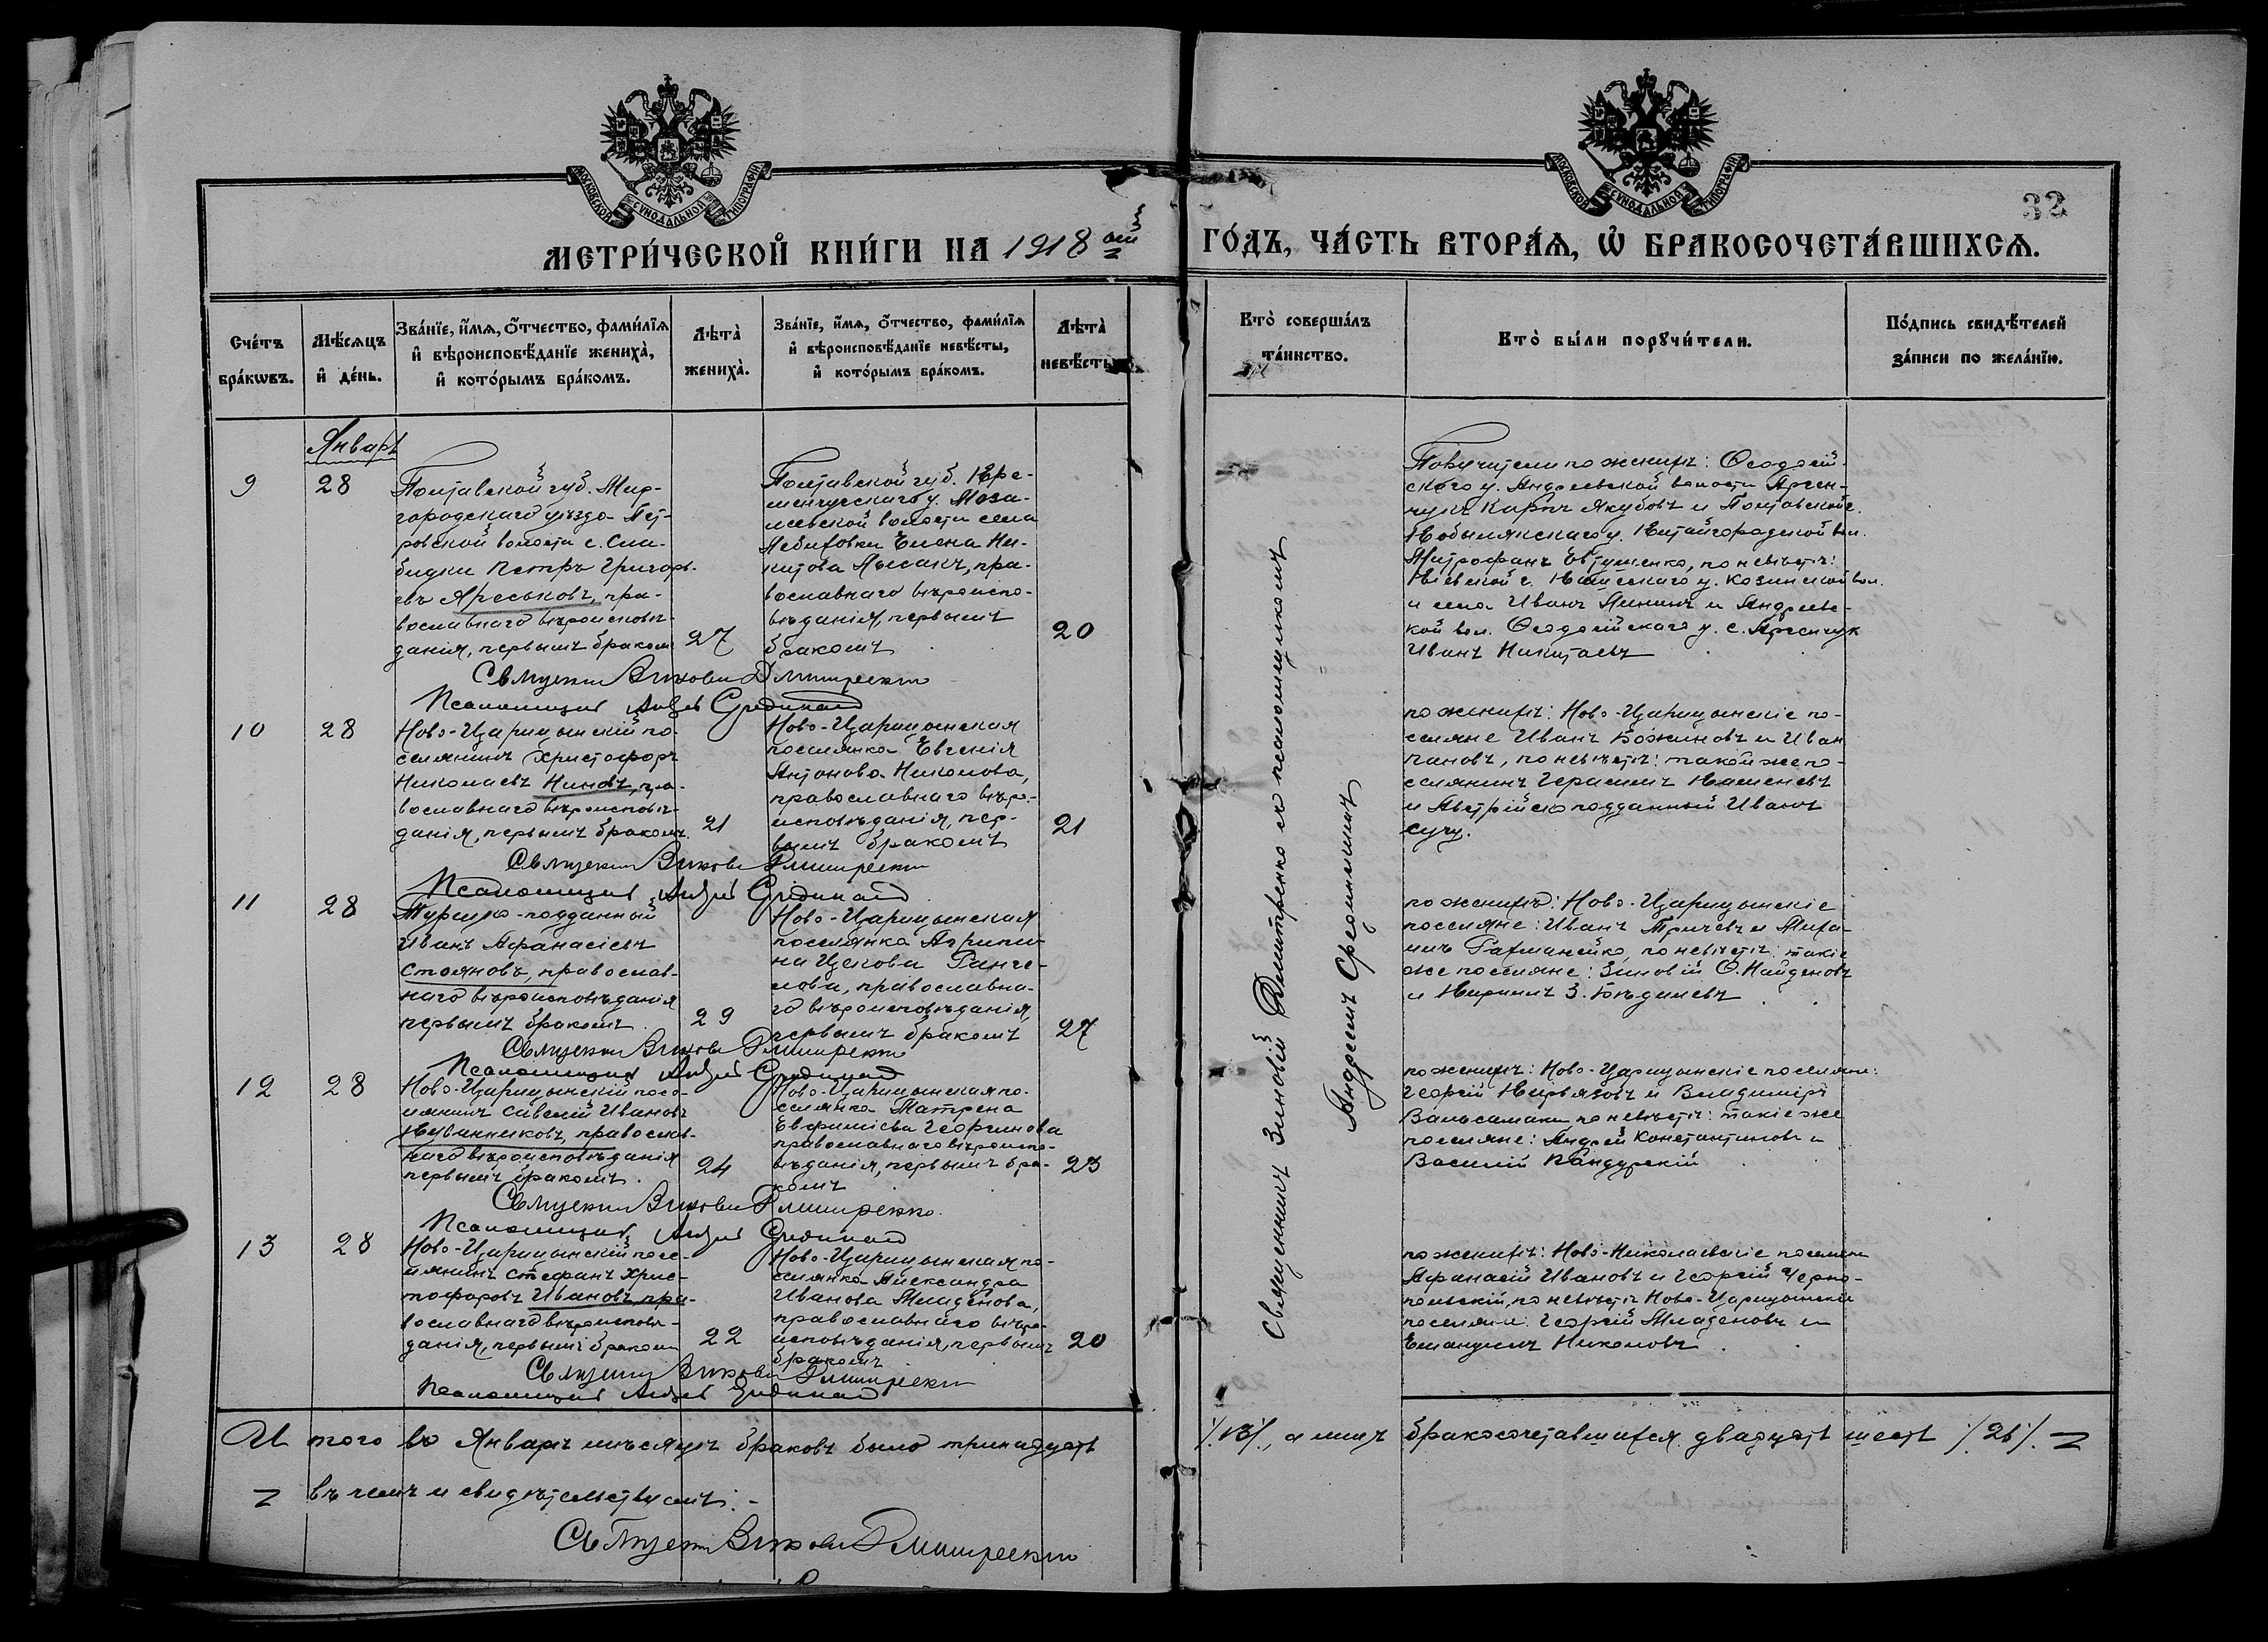 МОСКОВСКОЙ СѴНОДАЛЬНОЙ ТИПОГРАФІИ
МОСКОВСКОЙ СѴНОДАЛЬНОЙ ТИПОГРАФІИ
32
МЕТРИ́ЧЕСКОЙ КНИ́ГИ НА 1918 ый ГО́ДЪ, ЧА́СТЬ ВТОРА́Ѧ, Ѡ҆ БРАКОСОЧЕТА́ВШИХСѦ.
Сче́тъ
бра́кѡвъ.
Мѣ́сѧцъ
и҆ де́нь.
Зва́нїе, и҆́мѧ, ѻ҆́тчество, фами́лїѧ
и҆ вѣроисповѣ́данїе жениха̀,
и҆ кото́рымъ бра́комъ.
Лѣта̀
жениха̀.
Зва́нїе, и҆́мѧ, ѻ҆́тчество, фами́лїѧ
и҆ вѣроисповѣ́данїе невѣ́сты,
и҆ кото́рымъ бра́комъ.
Лѣта̀
невѣ́сты
Кто̀ соверша́лъ
та́инство.
Кто̀ бы́ли порꙋчи́тели.
По́дпись свидѣ́телей
за́писи по жела́нїю.
Январь
9
28
Полтавской губ. Мир-
городскаго уѣзда Пет-
ровской волости с. Сло-
бидки Петръ Григорь-
евъ Яреськовъ, пра-
вославнаго вѣроисповѣ-
данія, первымъ бракомъ
27
Полтавской губ. Кре-
менчугскаго у.
волости села
Елена Ни-
китова Лысакъ, пра-
вославнаго вѣроиспо-
вѣданія, первымъ
бракомъ
20
Поручители по женихѣ: Ѳеодосій-
скаго у. Андреевской волости
Карпъ Якубовъ и Полтавской г.
Кобылякскаго у. Китайгородской вол.
Митрофанъ Евтушенко, по невѣстѣ:
Кіевской г. у. Козинской вол.
и села Иванъ и Андреевс-
кой вол. Ѳеодосійскаго у. с.
Иванъ Никитаевъ
Священникъ Зиновій Дмитренко
Псаломщикъ Андрей
10
28
Ново-Царицынскій по-
селянинъ Христофоръ
Николаевъ Ниновъ, пра-
вославнаго вѣроисповѣ-
данія, первымъ бракомъ.
21
Ново-Царицынская
поселянка Евгенія
Антонова Николова,
православнаго вѣро-
исповѣданія, пер-
вымъ бракомъ
21
по женихѣ: Ново-Царицынскіе по-
селяне Иванъ Божиновъ и Иван
Пановъ, по невѣстѣ: такой же по-
селянинъ Герасимъ
и Австрійско подданный Иванъ
Сучу.
Священникъ Зиновій Дмитренко
Псаломщикъ Андрей
11
28
Турецко-подданный
Иванъ Афанасіевъ
Стояновъ, православ-
наго вѣроисповѣданія
первымъ бракомъ.
29
Ново-Царицынская
поселянка Агрипи-
на Цекова Ранге-
лова, православна-
го вѣроисповѣданія,
первымъ бракомъ
27
по женихѣ: Ново-Царицынскіе
поселяне: Иванъ Тричевъ и Миха-
илъ по невѣстѣ: такіе
же поселяне: Зиновій Ѳ. Найденовъ
и Кириллъ З.
Священникъ Зиновій Дмитренко
Псаломщикъ Андрей
12
28
Ново-Царицынскій посе-
лянинъ Савелій Ивановъ
православ-
наго вѣроисповѣданія
первымъ бракомъ.
24
Ново-Царицынская по-
селянка Матрена
Евфиміева Георгинова
православнаго вѣроиспо-
вѣданія, первымъ бра-
комъ
23
по женихѣ: Ново-Царицынскіе поселяне:
Георгій Кирьязовъ и Владиміръ
Вальсамаки, по невѣстѣ: такіе же
поселяне: Андрей Константиновъ и
Василій Пандурскій
Священникъ Зиновій Дмитренко
Псаломщикъ Андрей
13
28
Ново-Царицынскій посе-
лянинъ Стефанъ Хрис-
тофоровъ Ивановъ, пра-
вославнаго вѣроисповѣ-
данія, первымъ бракомъ
22
Ново-Царицынская по-
селянка Александра
Иванова Младенова,
православнаго вѣро-
исповѣданія, первымъ
бракомъ
20
по женихѣ: Ново-Николаевскіе поселяне
Афанасій Ивановъ и Георгій Черно-
польскій, по невѣстѣ Ново-Царицынскіе
поселяне: Георгій Младеновъ и
Емануилъ Николовъ
Священникъ Зиновій Дмитренко
Псаломщикъ Андрей
Священникъ Зиновій Дмитренко съ псаломщикомъ
Андреемъ
И того въ Январѣ мѣсяцѣ браковъ было тринадцать /.13/., а лицъ бракосочетавшихся двадцать шесть /.26/.
въ чемъ и свидѣтельствуемъ:
Священникъ Зиновій Дмитренко